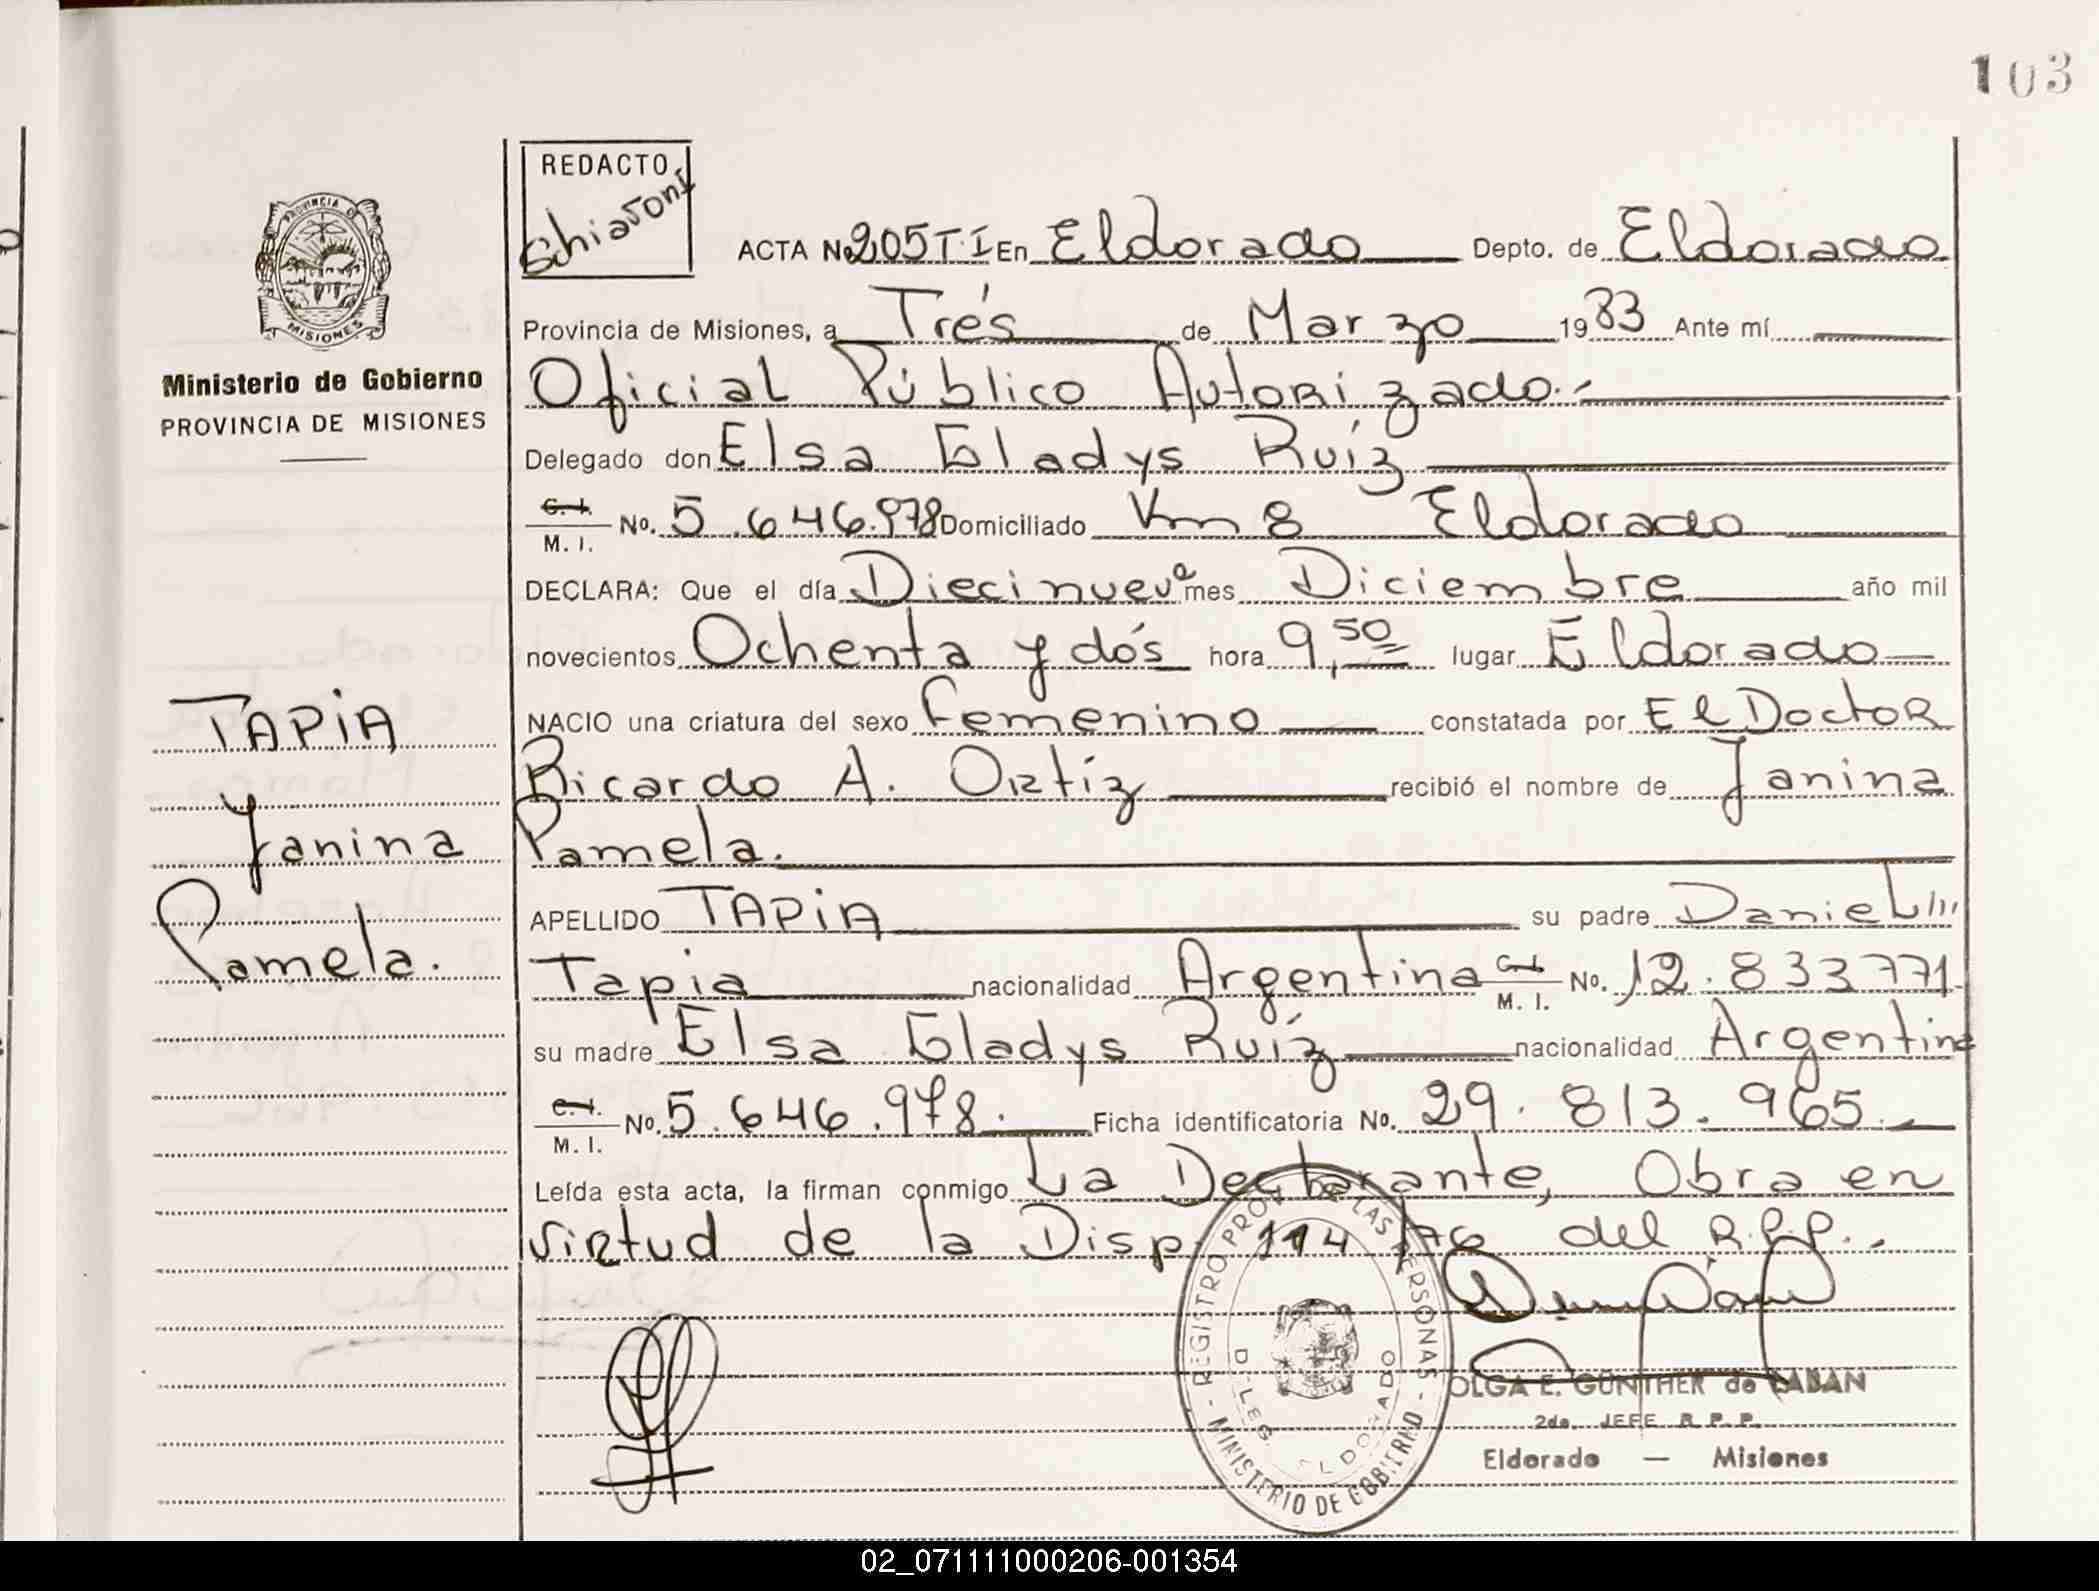 103
REDACTO
Schiavoni
PROVINCIA DE
MISIONES
Ministerio de Gobierno
PROVINCIA DE MISIONES
ACTA No 205 T·I En Eldorado Depto. de Eldorado
Provincia de Misiones, a Trés de Marzo 1983 Ante mí
Oficial Público Autorizado.-
Delegado don Elsa Gladys Ruíz
C. I. M. I. No. 5.646.978 Domiciliado Km 8 Eldorado
DECLARA: Que el día Diecinueve mes Diciembre año mil
novecientos Ochenta y dós hora 9,50 lugar Eldorado
NACIO una criatura del sexo Femenino constatada por El Doctor
Ricardo A. Ortíz recibió el nombre de Janina
Pamela.
APELLIDO TAPiA su padre Daniel
Tapia nacionalidad Argentina C. I. M. I. No. 12.833771
su madre Elsa Gladys Ruíz nacionalidad Argentina
C. I. M. I. No. 5.646.978. Ficha identificatoria No. 29.813.965.-
Leída esta acta, la firman conmigo La Declarante, Obra en
virtud de la Disp. 114/76 del R.P.P..-
TAPiA
Janina
Pamela.
REGISTRO PROV. DE LAS PERSONAS - MINISTERIO DE GOBIERNO -
DELEG. ELDORADO
OLGA E. GÜNTHER de LABAN
2da. JEFE R. P. P.
Eldorado — Misiones
02_071111000206-001354